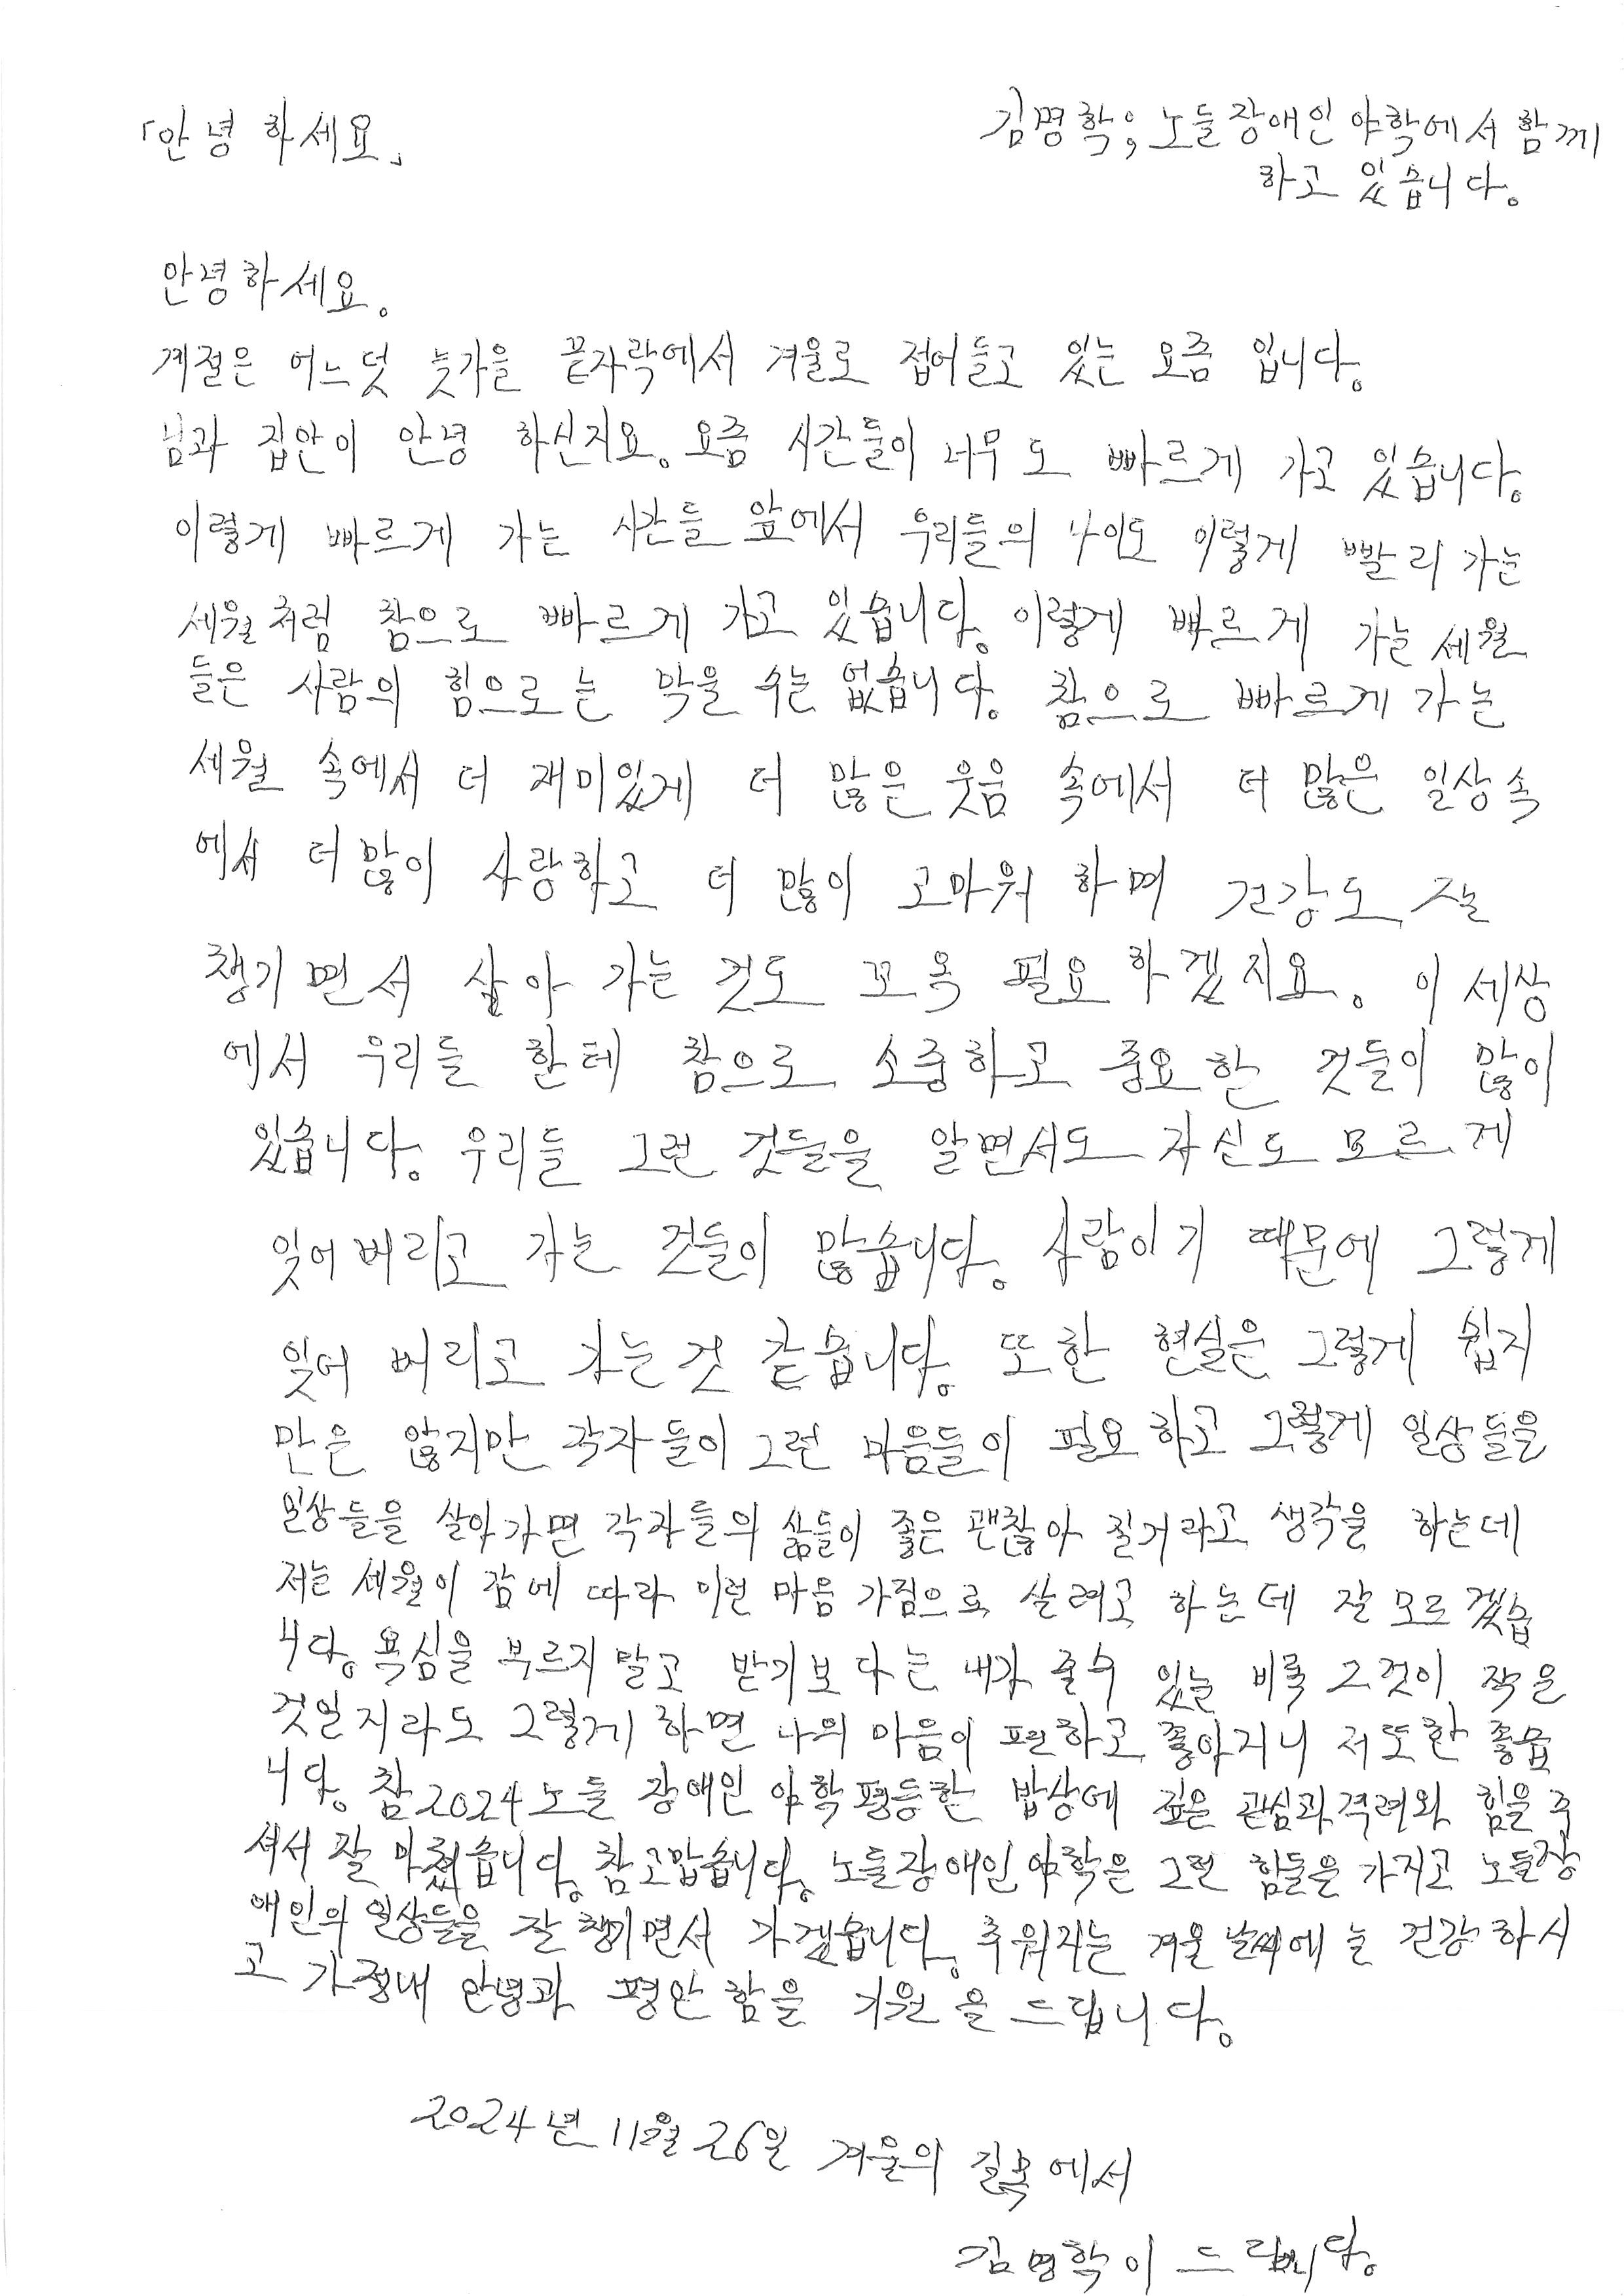 「안녕 하세요」
김명학; 노들장애인 야학에서 함께
하고 있습니다.
안녕하세요.
계절은 어느덧 늦가을 끝자락에서 겨울로 접어들고 있는 요즘 입니다.
님과 집안이 안녕 하신지요. 요즘 시간들이 너무도 빠르게 가고 있습니다.
이렇게 빠르게 가는 시간들 앞에서 우리들의 나이도 이렇게 빨리 가는
세월처럼 참으로 빠르게 가고 있습니다. 이렇게 빠르게 가는 세월
들은 사람의 힘으로는 막을 수는 없습니다. 참으로 빠르게 가는
세월 속에서 더 재미있게 더 많은 웃음 속에서 더 많은 일상 속
에서 더 많이 사랑하고 더 많이 고마워 하며 건강도 잘
챙기면서 살아 가는 것도 꼬옥 필요 하겠지요. 이 세상
에서 우리들 한테 참으로 소중하고 중요한 것들이 많이
있습니다. 우리들 그런 것들을 알면서도 자신도 모르게
잊어버리고 가는 것들이 많습니다. 사람이기 때문에 그렇게
잊어 버리고 가는 것 같습니다. 또한 현실은 그렇게 쉽지
만은 않지만 각자들이 그런 마음들이 필요하고 그렇게 일상들을
일상들을 살아가면 각자들의 삶들이 좋은 괜찮아 질거라고 생각을 하는데
저는 세월이 감에 따라 이런 마음 가짐으로 살려고 하는데 잘 모르겠습
니다. 욕심을 부르지 말고 받기보다는 내가 줄수 있는 비록 그것이 작은
것일지라도 그렇게 하면 나의 마음이 편하고 좋아지니 저 또한 좋습
니다. 참 2024 노들 장애인 야학 평등한 밥상에 깊은 관심과 격려와 힘을 주
셔서 잘 마쳤습니다. 참 고맙습니다. 노들장애인야학은 그런 힘들을 가지고 노들장
애인의 일상들을 잘 챙기면서 가겠습니다. 추워지는 겨울 날씨에 늘 건강하시
고 가정내 안녕과 평안함을 기원을 드립니다.
2024년 11월 26일 겨울의 길목에서
김명학이 드립니다.